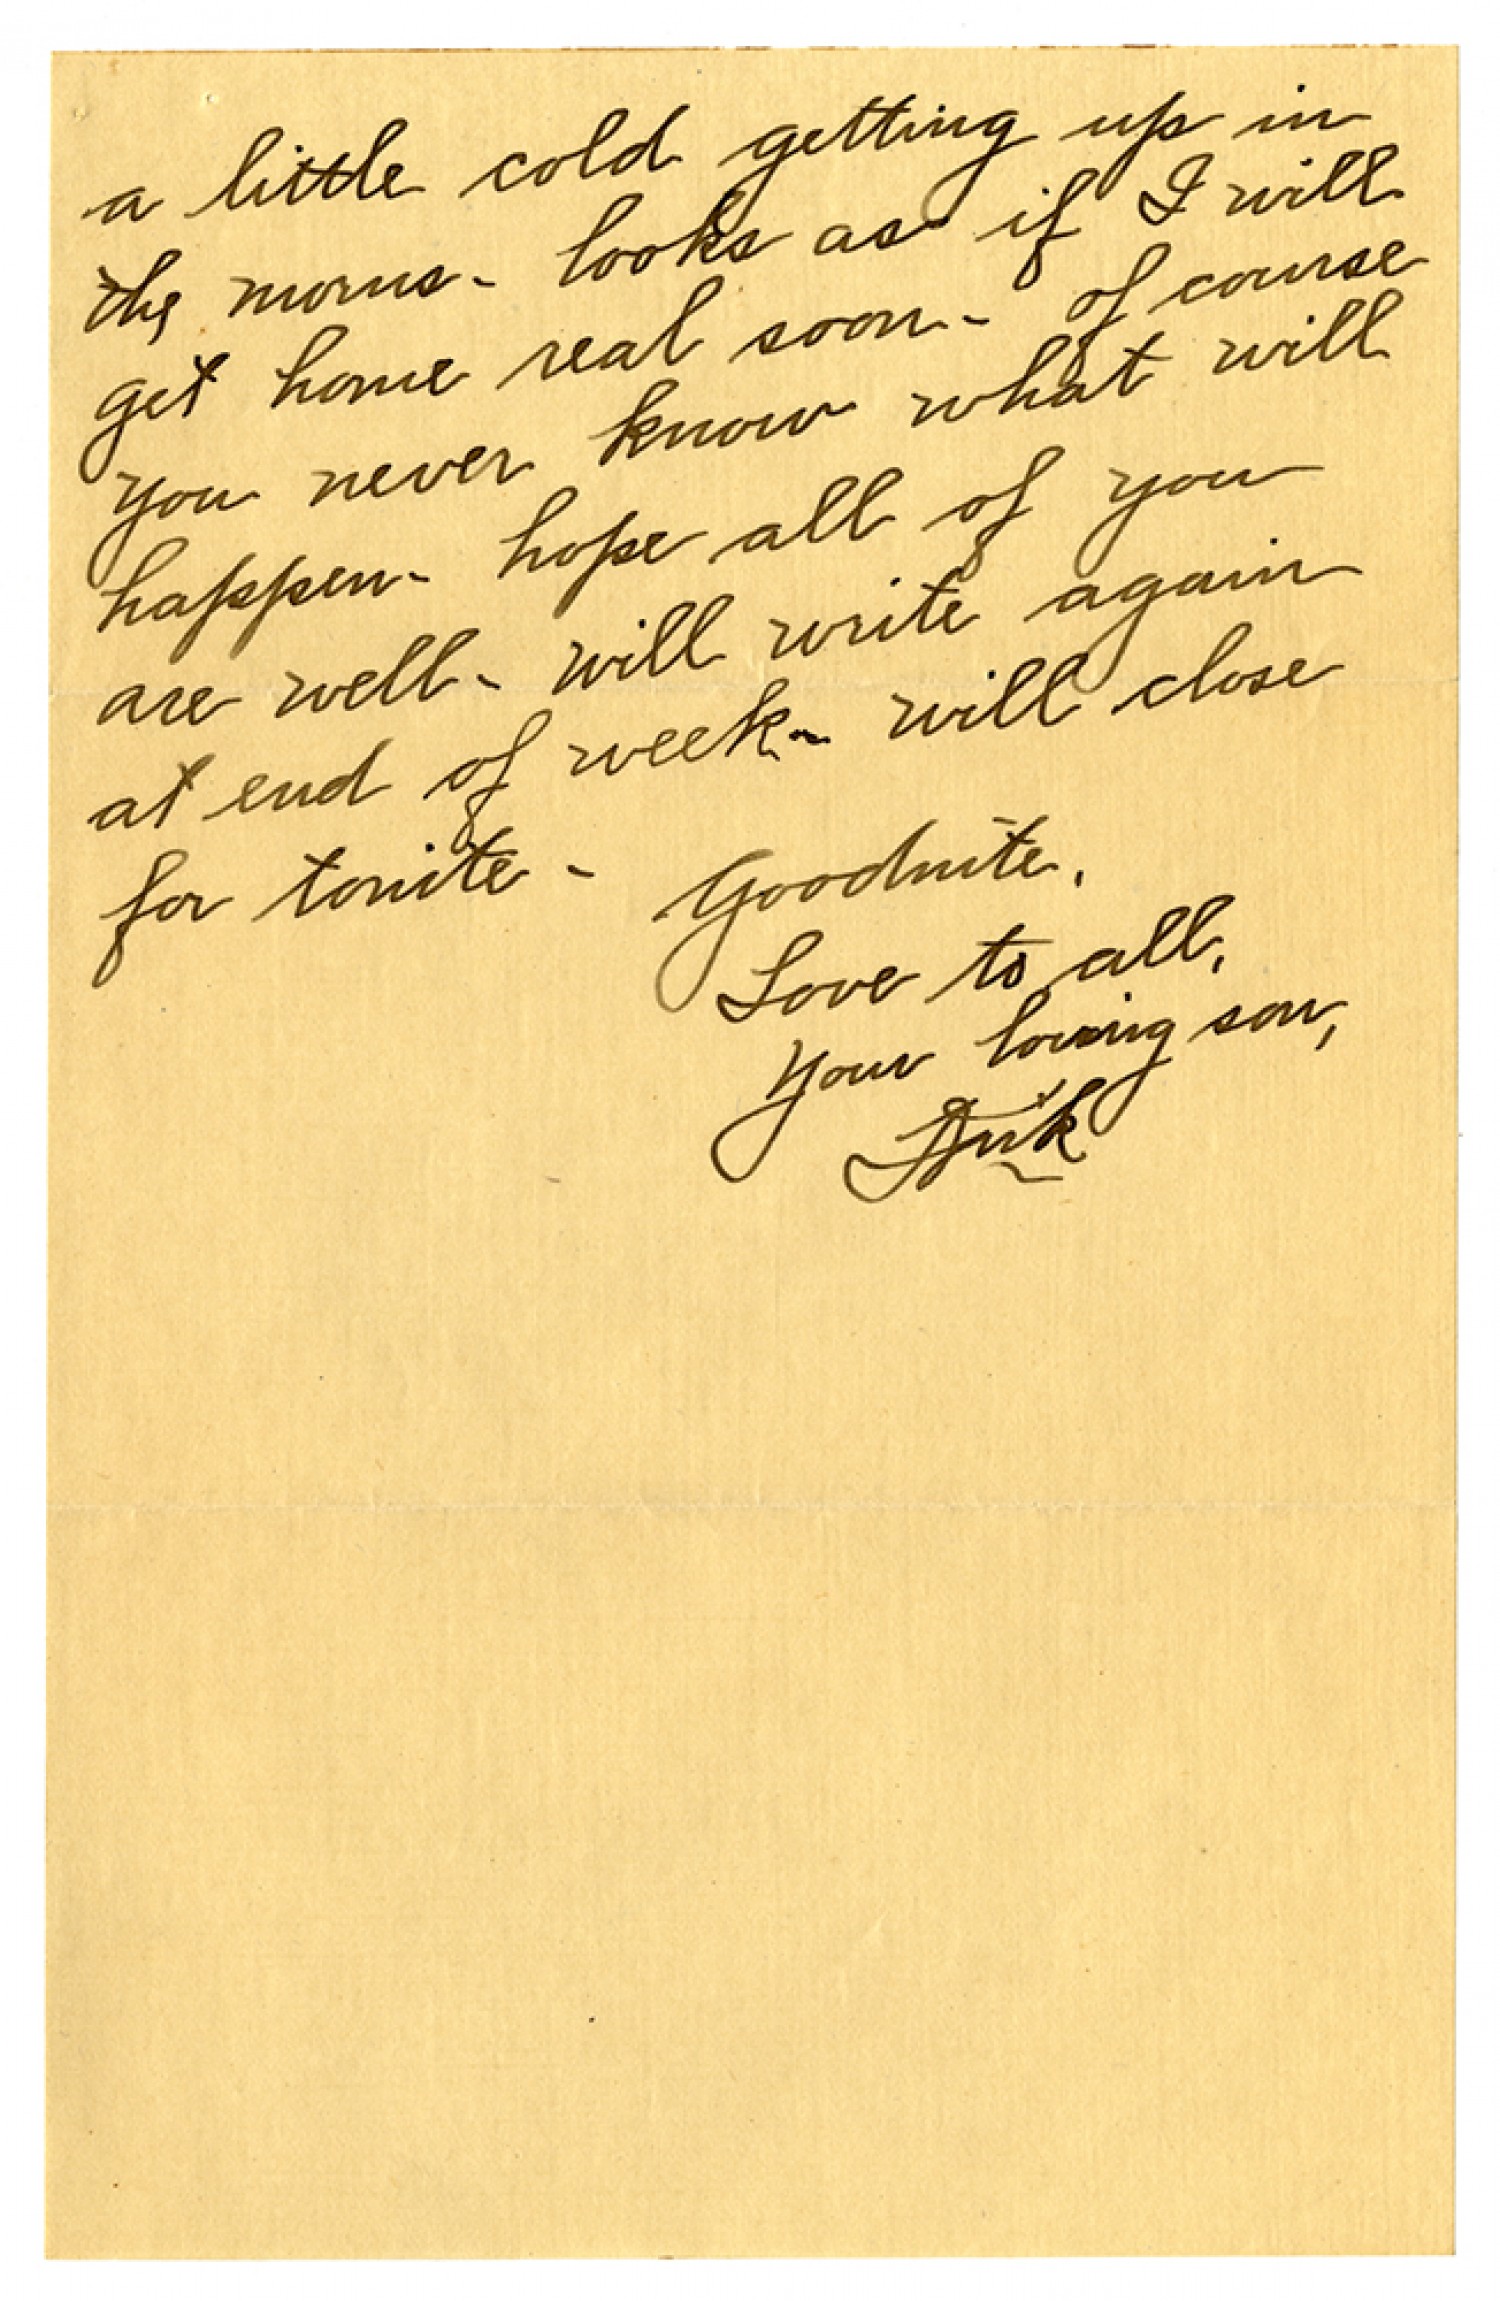 a little cold getting up in
the morns - looks as if I will
get home real soon - of course
you never know what will
happen - hope all of you
are well - will write again
at end of week - will close
for tonite -
Goodnite.
Love to all,
Your loving son,